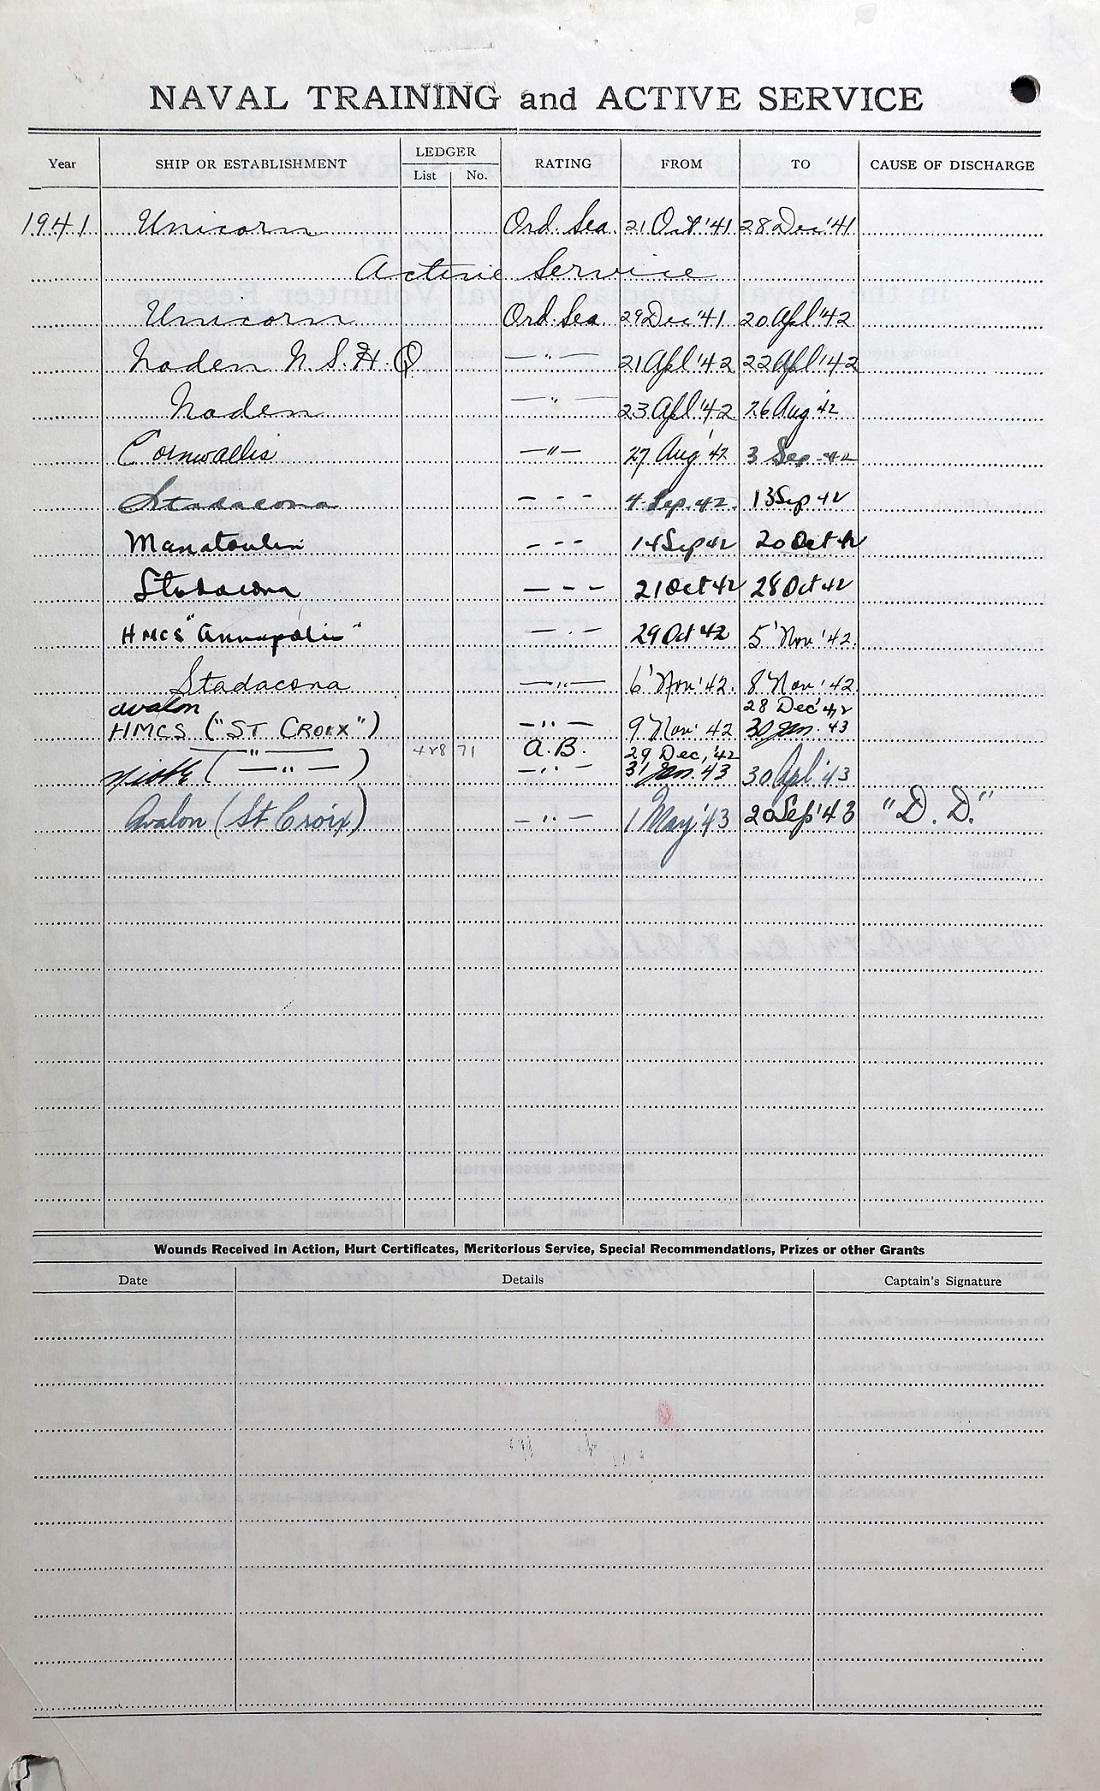 NAVAL TRAINING and ACTIVE SERVICE
Year SHIP OR ESTABLISHMENT LEDGER RATING FROM TO CAUSE OF DISCHARGE
List No.
1941 Unicorn Ord. Sea. 21 Oct '41 28 Dec '41
Active Service
Unicorn Ord. Sea. 29 Dec '41 20 Apl '42
Naden N.S.H.Q —"— 21 Apl '42 22 Apl '42
Naden —"— 23 Apl '42 26 Aug '42
Cornwallis —"— 27 Aug '42 3 Sep 42
Stadacona - - - 4 Sep. 42. 13 Sep 42
Manatoulin - - - 14 Sep 42 20 Oct 42
Stadacona - - - 21 Oct 42 28 Oct 42
HMCS "Annapolis" —"— 29 Oct '42 5 Nov '42.
Stadacona —"— 6 Nov '42. 8 Nov '42.
Avalon 28 Dec '42
HMCS ("ST CROIX") —"— 9 Nov. 42 30 Jan. 43
(—"—) 428 71 A.B. 29 Dec, '42
—"— 31 Jan. 43 30 Apl '43
Avalon (St Croix) —"— 1 May '43 20 Sep '43 "D.D."
Wounds Received in Action, Hurt Certificates, Meritorious Service, Special Recommendations, Prizes or other Grants
Date Details Captain's Signature